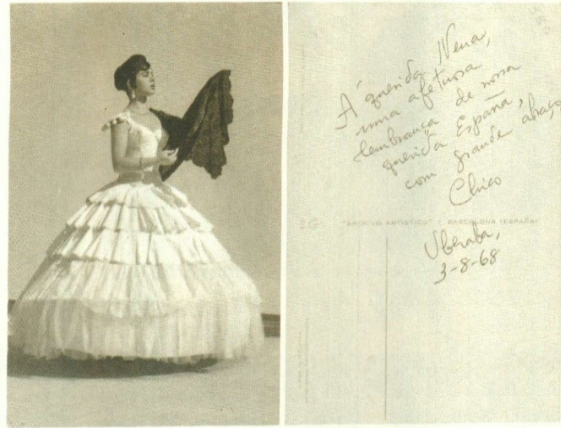 À querida Nena,
uma afetuosa
lembrança de nossa
querida España,
com grande abraço
Chico
"ARCHIVO ARTISTICO" BARCELONA (ESPAÑA)
Uberaba,
3-8-68